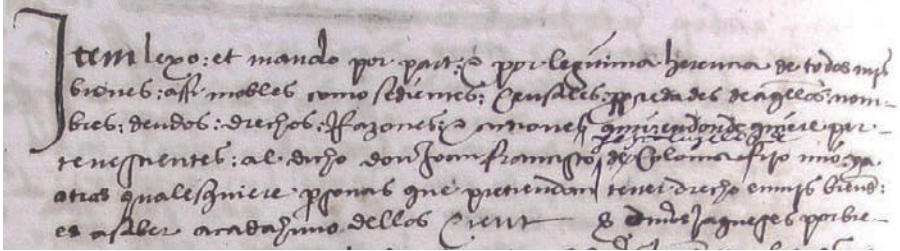 Item lexo: et mando por part: et por legitima herencia de todos mis
bienes: assi mobles como sedientes: Censales: propiedades de aquellos: nom-
bres: deudos: drechos: Razones: et actiones
tenescientes: al dicho don Joan Francisco de Coloma fijo mio:
otras qualesquiere personas que pretiendan tener drecho en mis bienes:
es a saber a cada huno dellos Cient dineros Jaqueses por bie-